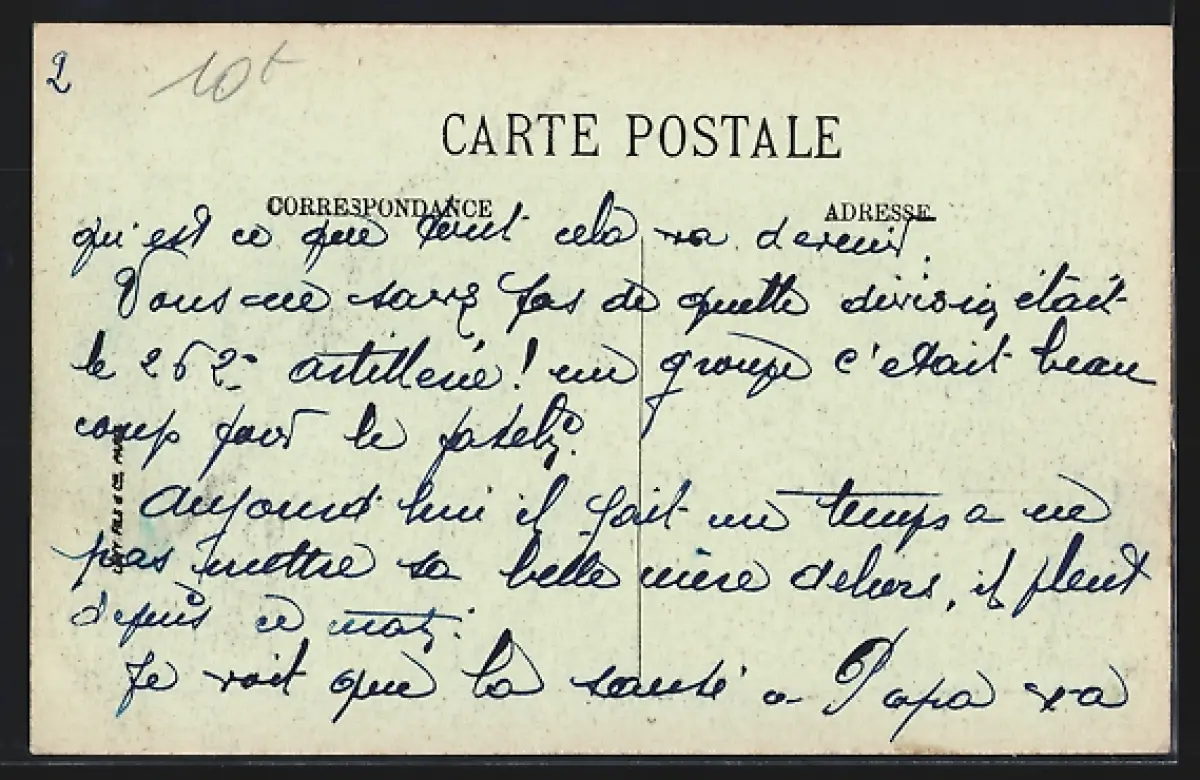 2 10t
CARTE POSTALE
CORRESPONDANCE ADRESSE
qu'est ce que tout cela va devenir.
Vous ne savez pas de quelle division était
le 262e artillerie! un groupe c'était beau
coup pour le
aujourd'hui il fait un temps a ne
pas mettre sa belle mère dehors, il pleut
depuis ce matin.
Je voit que la santé a Papa va
LÉVY FILS & Cie, PARIS